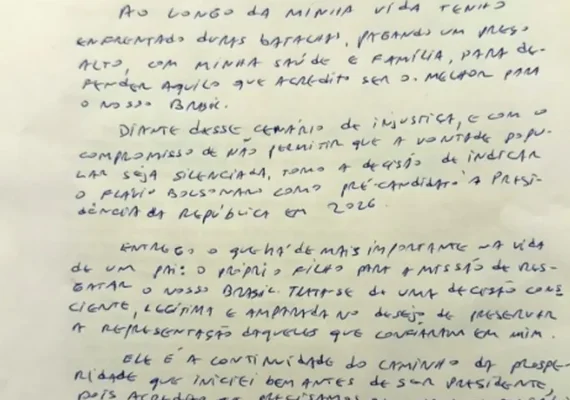 AO LONGO DA MINHA VIDA TENHO
ENFRENTADO DURAS BATALHAS, PAGANDO UM PREÇO
ALTO, COM MINHA SAÚDE E FAMÍLIA, PARA DE-
FENDER AQUILO QUE ACREDITO SER O MELHOR PARA
O NOSSO BRASIL.
DIANTE DESSE CENÁRIO DE INJUSTIÇA, E COM O
COMPROMISSO DE NÃO PERMITIR QUE A VONTADE POPU-
LAR SEJA SILENCIADA, TOMO A DECISÃO DE INDICAR
O FLÁVIO BOLSONARO COMO PRÉ-CANDIDATO À PRESI-
DÊNCIA DA REPÚBLICA EM 2026.
ENTREGO O QUE HÁ DE MAIS IMPORTANTE NA VIDA
DE UM PAI: O PRÓPRIO FILHO PARA A MISSÃO DE RES-
GATAR O NOSSO BRASIL. TRATA-SE DE UMA DECISÃO CONS
CIENTE, LEGÍTIMA E AMPARADA NO DESEJO DE PRESERVAR
A REPRESENTAÇÃO DAQUELES QUE CONFIARAM EM MIM.
ELE É A CONTINUIDADE DO CAMINHO DA PROSPE-
RIDADE QUE INICIEI BEM ANTES DE SER PRESIDENTE,
POIS ACREDITO QUE PRECISAMOS